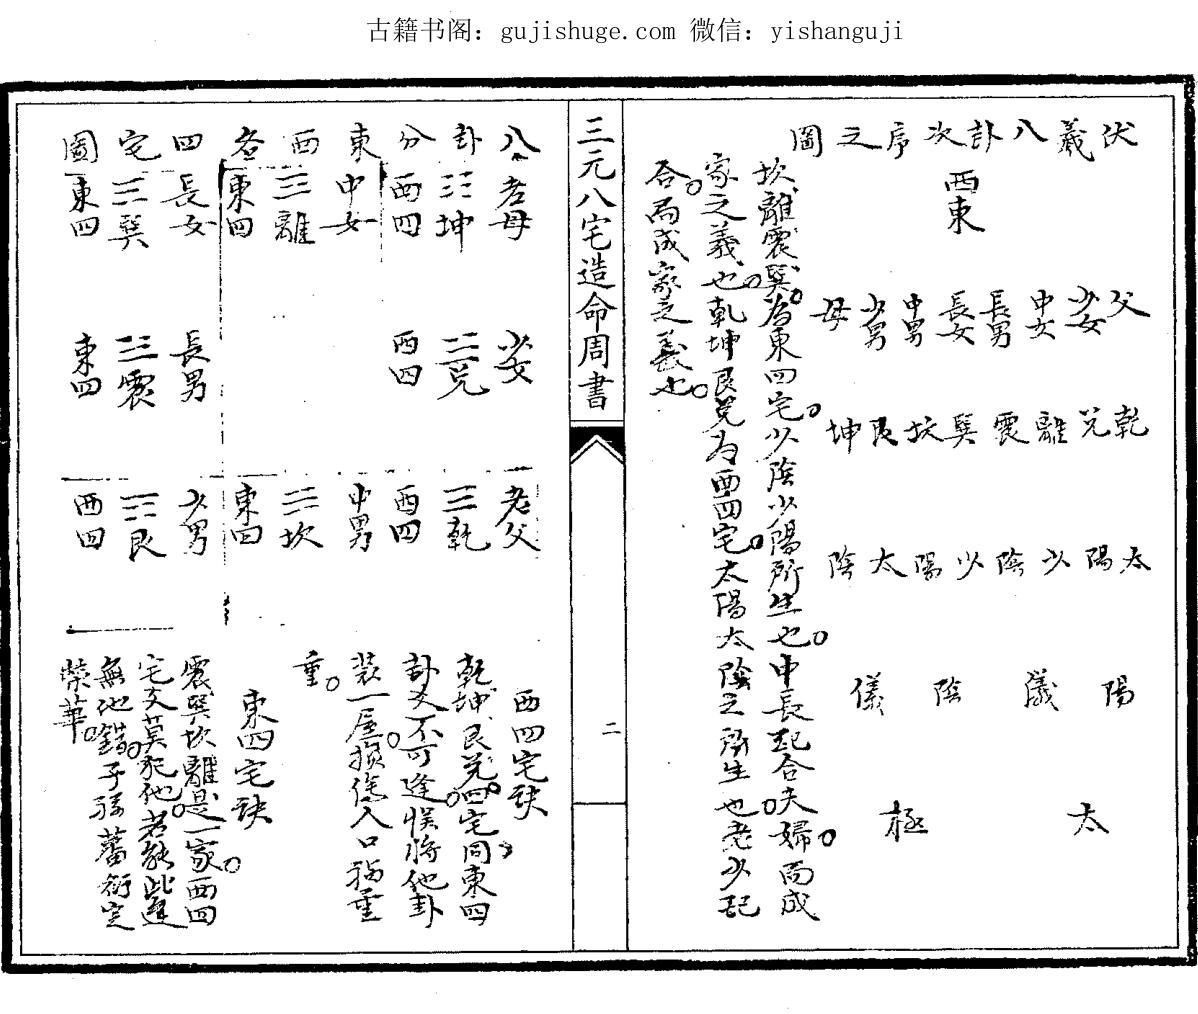 古籍书阁：gujishuge.com 微信：yishanguji
伏羲八卦次序之圖
西東
父 少女 中女 長男 長女 中男 少男 母
乾 兌 離 震 巽 坎 艮 坤
太陽 少陰 少陽 太陰
陽儀 陰儀
太極
坎離震巽為東四宅少陰少陽所生也中長配合夫婦而成
家之義也乾坤艮兌為西四宅太陽太陰之所生也老少配
合而成家之義也
三元八宅造命周書
二
八卦分東西各四宅圖
老母 ☷坤 西四
中女 ☲離 東四
長女 ☴巽 東四
少女 ☱兌 西四
長男 ☳震 東四
老父 ☰乾 西四
中男 ☵坎 東四
少男 ☶艮 西四
西四宅訣
乾坤艮兌四宅同東四
卦爻不可逢悞將他卦
裝一屋損傷人口禍重
重
東四宅訣
震巽坎離是一家西四
宅爻莫犯他若能此運
無他錯子孫蕃衍定
榮華